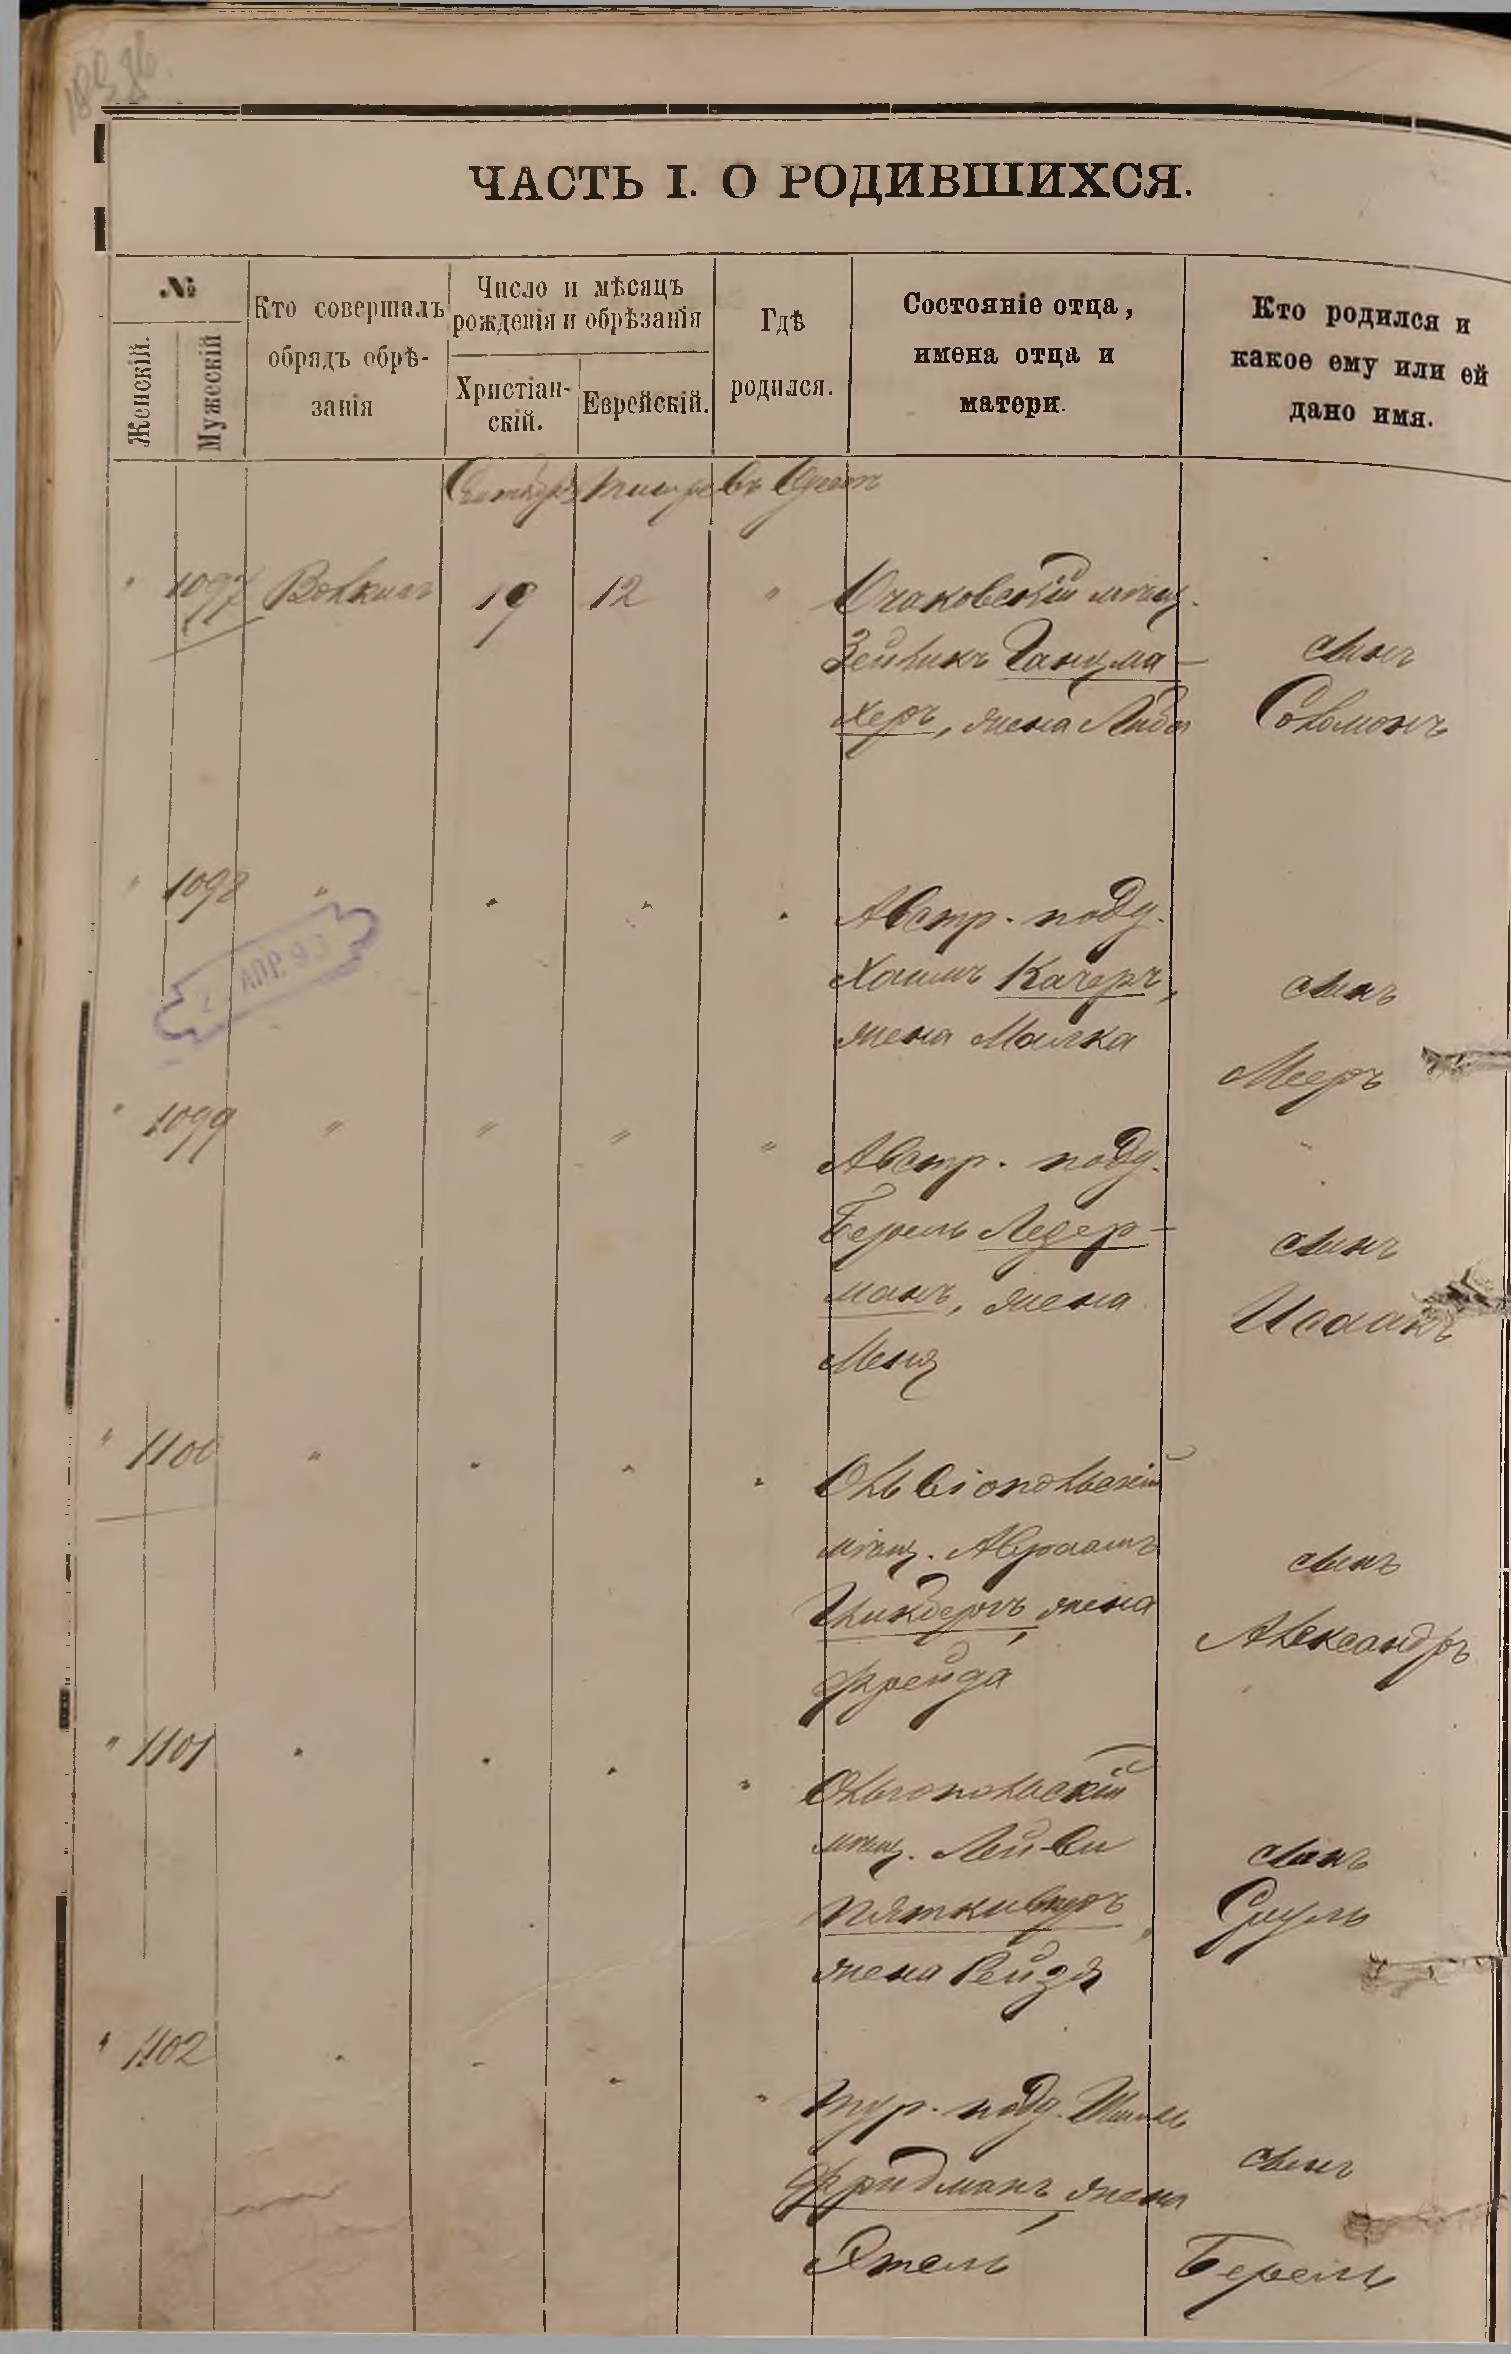 ЧАСТЬ I. О РОДИВШИХСЯ.
№
Женскій.
Мужескій
Кто совершалъ
обрядъ обрѣ-
занія
Число и мѣсяцъ
рожденія и обрѣзанія
Христіан-
скій.
Еврейскій.
Гдѣ
родился.
Состояніе отца,
имена отца и
матери.
Кто родился и
какое ему или ей
дано имя.
въ Одессѣ
" 1097 19 12 " Очаковскій мѣщ.
Зейликъ Ганцма-
херъ, жена Либа
сынъ
Соломонъ
" 1098 " " " " Австр. подд.
Хаимъ Качеръ,
жена Малка
сынъ
Мееръ
2 АПР. 93
" 1099 " " " " Австр. подд.
Берель Ледер-
манъ, жена
Меня
сынъ
Исаакъ
" 1100 " " " " Овидіопольскій
мѣщ. Авраамъ
жена
Фрейда
сынъ
Александръ
" 1101 " " " " Ольгопольскій
мѣщ. Лейви
жена Рейзя
сынъ
Сруль
" 1102 " " " " Тур. подд.
Фридманъ, жена
Этель
сынъ
Берель